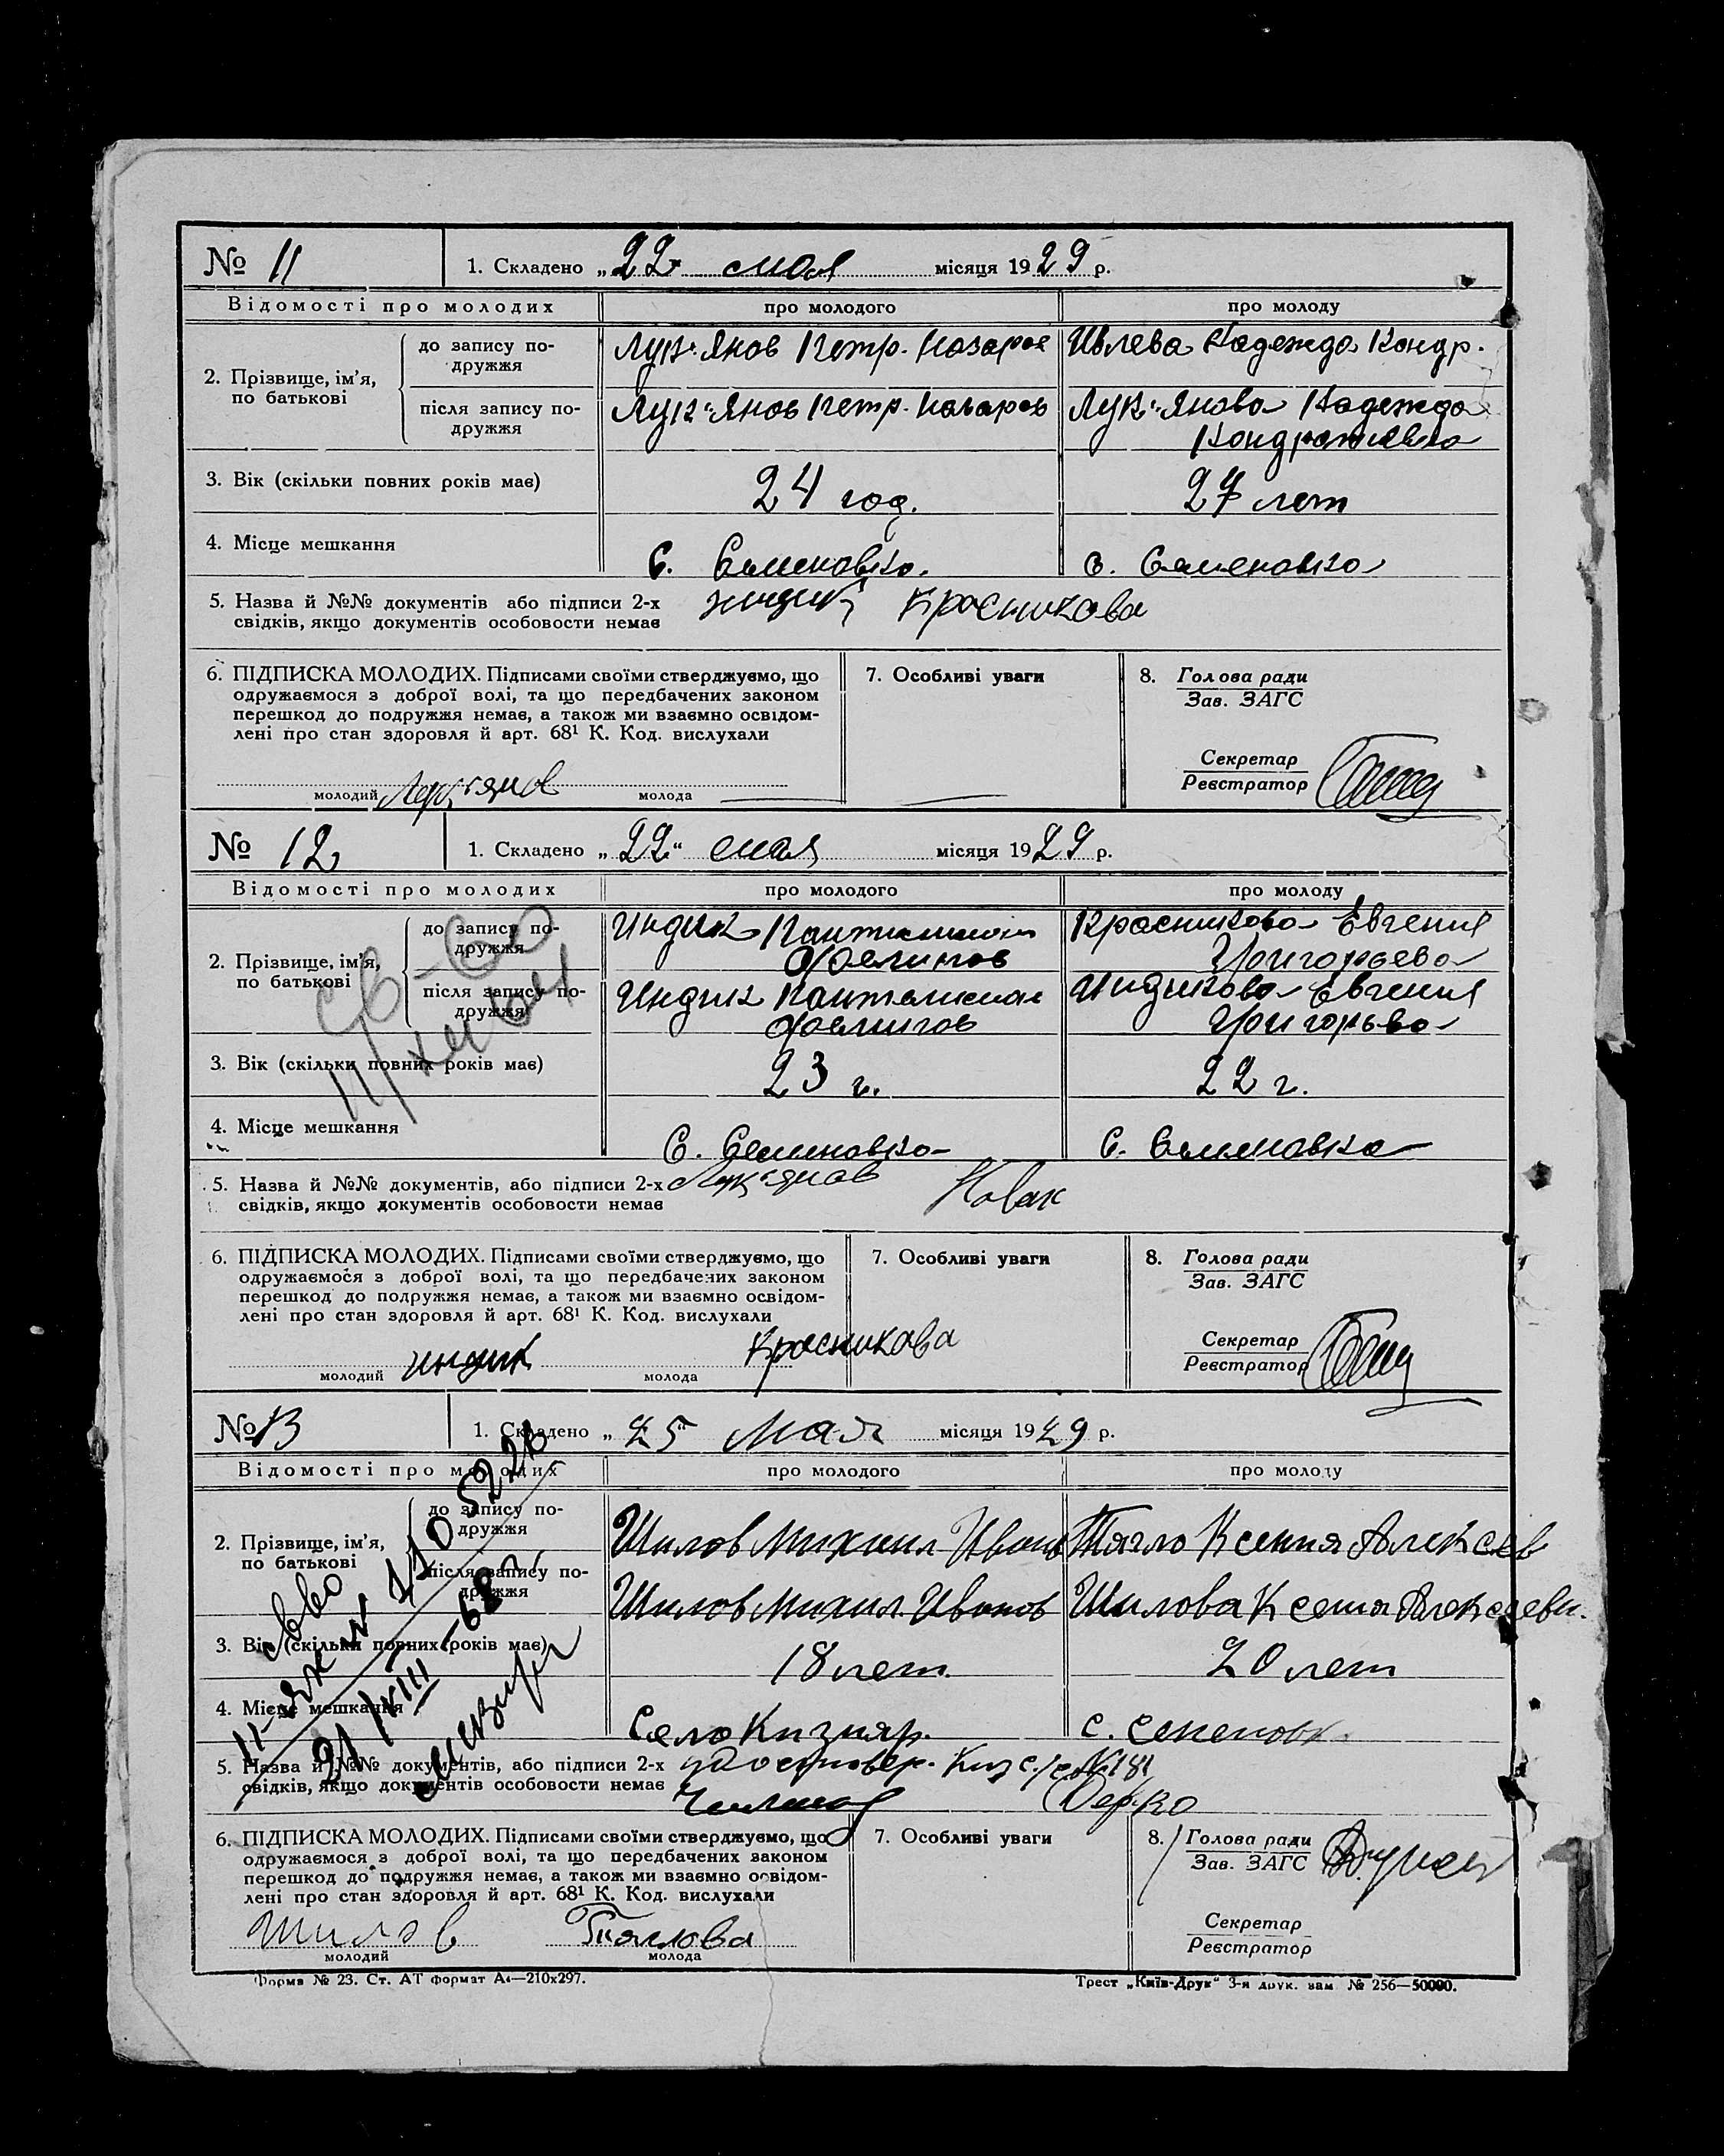 № 11 1. Складено „22" мая місяця 1929 р.
Відомості про молодих про молодого про молоду
2. Прізвище, ім'я, по батькові
до запису по-дружжя Лук'янов Петр. Назаров Ивлева Надежда Кондр.
після запису по-дружжя Лук'янов Петр. Назаров Лук'янова Надежда
Кондратьевна
3. Вік (скільки повних років має) 24 год. 27 лет
4. Місце мешкання С. Семеновка. С. Семеновка
5. Назва й №№ документів або підписи 2-х
свідків, якщо документів особовости немає
индик Красникова
6. ПІДПИСКА МОЛОДИХ. Підписами своїми стверджуємо, що
одружаємося з доброї волі, та що передбачених законом
перешкод до подружжя немає, а також ми взаємно освідом-
лені про стан здоровля й арт. 68¹ К. Код. вислухали
молодий Лук'янов молода
7. Особливі уваги
8. Голова ради
Зав. ЗАГС
Секретар
Реєстратор
№ 12 1. Складено „22" мая місяця 1929 р.
Відомості про молодих про молодого про молоду
2. Прізвище, ім'я, по батькові
до запису по-дружжя Индик Пантилимон Красникова Евгения
Григорьева
після запису по-дружжя Индик Пантелимон Индикова Евгения
Григорьева
3. Вік (скільки повних років має) 23 г. 22 г.
4. Місце мешкання С. Семеновка С. Семеновка
5. Назва й №№ документів, або підписи 2-х
свідків, якщо документів особовости немає
Лук'янов Новак
6. ПІДПИСКА МОЛОДИХ. Підписами своїми стверджуємо, що
одружаємося з доброї волі, та що передбачених законом
перешкод до подружжя немає, а також ми взаємно освідом-
лені про стан здоровля й арт. 68¹ К. Код. вислухали
молодий индик молода Красникава
7. Особливі уваги
8. Голова ради
Зав. ЗАГС
Секретар
Реєстратор
№ 13 1. Складено „25" мая місяця 1929 р.
Відомості про молодих про молодого про молоду
2. Прізвище, ім'я, по батькові
до запису по-дружжя Шилов Михаил Иванов Тягло Ксения Алексеев
після запису по-дружжя Шилов Михаил Иванов Шилова Ксения Алексеевн.
3. Вік (скільки повних років має) 18 лет 20 лет
4. Місце мешкання Село Кизияр. с. Семеновк
5. Назва й №№ документів, або підписи 2-х
свідків, якщо документів особовости немає
удостовер. Киз с/с №181
6. ПІДПИСКА МОЛОДИХ. Підписами своїми стверджуємо, що
одружаємося з доброї волі, та що передбачених законом
перешкод до подружжя немає, а також ми взаємно освідом-
лені про стан здоровля й арт. 68¹ К. Код. вислухали
Шилов Тяглова
молодий молода
7. Особливі уваги
8. Голова ради
Зав. ЗАГС
Секретар
Реєстратор
Форма № 23. Ст. АТ формат А4—210х297. Трест „Київ-Друк" 3-я друк. зам. № 256—50000.